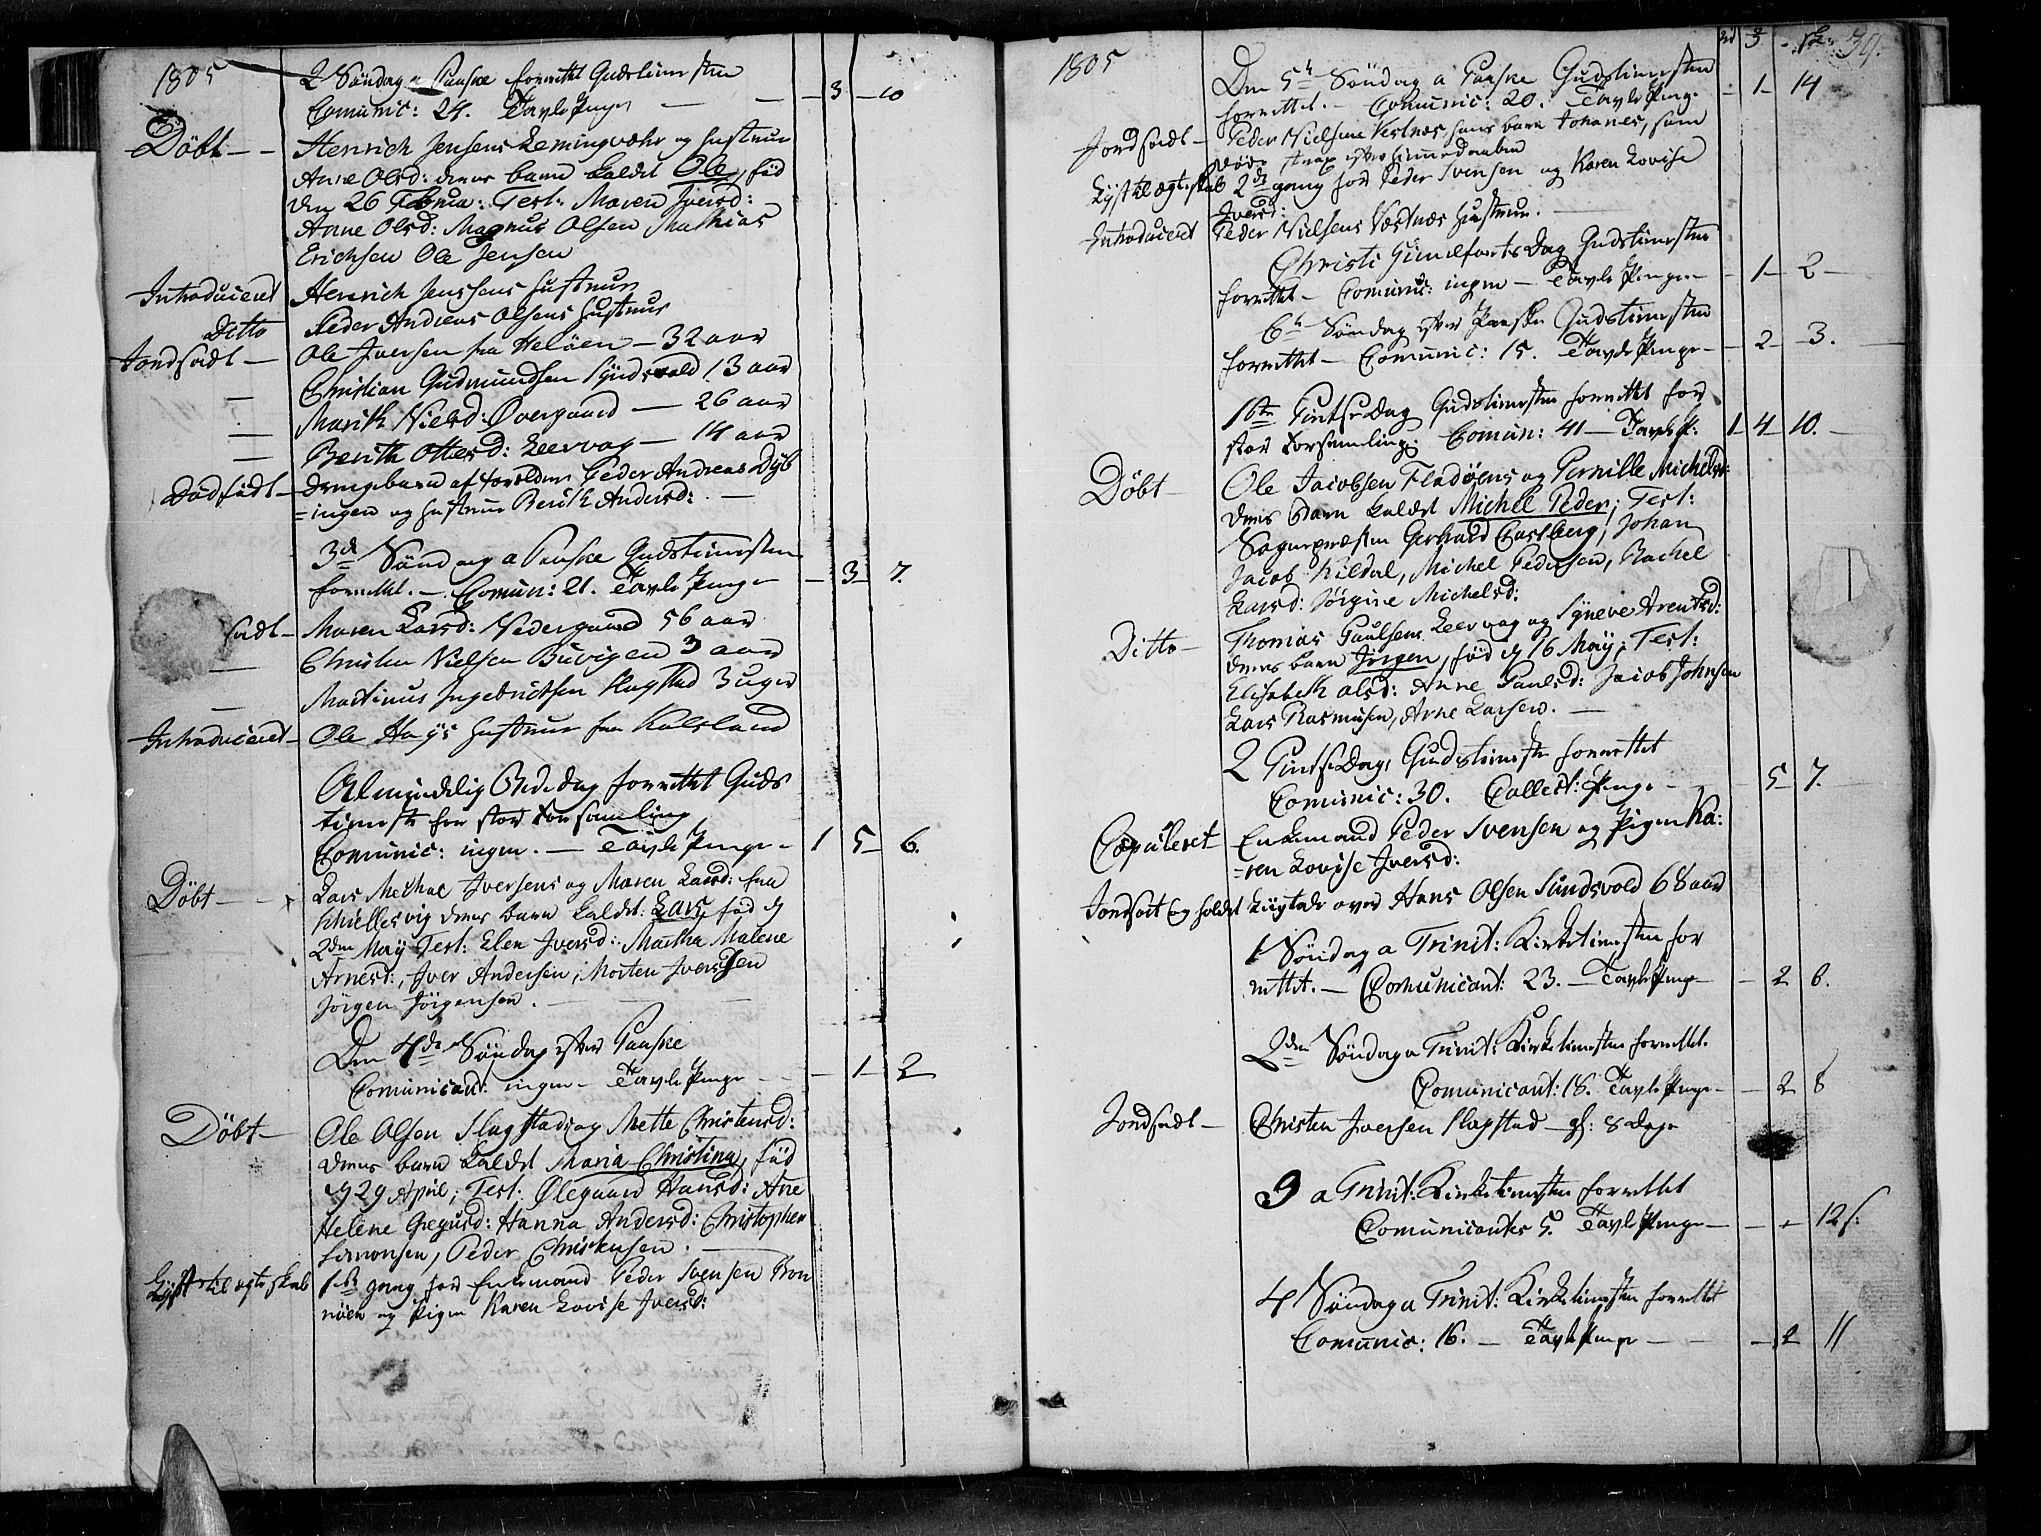 1805
2 Söndag a Paaske forrettet Gudstienesten
Comunic: 24. Tavle Penge — — 3 — 10
Döbt — Henrich Jensens Lemingvæhr og Hustrue
Anne Olsd: deres barn kaldet Ole, föd
den 26 Februa: Test: Maren Iversd:
Anne Olsd: Magnus Olsen Mathias
Erichsen Ole Jensen
Introduceret Henrich Jenssens hustrue
Ditto Peder Andreas Olsens Hustrue
Jordfæst — Ole Iversen fra Helöen — 32 aar
— Christian Gudmundsen Syndsvold 13 aar
— Marith Nielsd: Overgaard — 26 aar
— Berith Ottesd: Leervag — 14 aar
Dödfödt — drengebarn af forældre Peder Andreas Dyb
=ingen og hustrue Berith Andersd: —
3de Söndag a Paaske Gudstienesten
forrettet. — Comun: 21. Tavle Penge — 3 — 7.
fædt — Maren Larsd: Nedergaard 56 aar
— Christen Nielsen Buvigen 3 aar
— Martinus Ingebrictsen Slagstad 3 uger
Introduceret — Ole Hays hustrue fra Kalsland
Almindelig Bededag forrettet Guds
tieneste for stor Forsamling
Comunic: ingen. — Tavle Penge — 1 5 — 6.
Döbt — Lars Michal Iversens og Maren Larsd: fra
deres barn kaldet: Lars, föd d
2den May Test: Elen Iversd: Martha Malene
Arnesd:, Iver Andersen, Morten Iverssen
Jörgen Jörgensen. —
Den 4de Söndag efter Paaske
Comunicant: ingen — Tavle Penge — — 1 — 2
Döbt — Ole Olsen Slagstads og Mette Christensd:
deres barn kaldet Maria Christina, föd
d 29 April; Test: Olegaard Hansd: Ane
Helene Gregusd: Hanna Andersd: Christopher
Simonsen, Peder Christensen. —
Lyst til ægteskab 1ste gang for Enkemand Peder Svensen Bron
nöen og Pigen Karen Lovise Iversd:
1805
3 39.
Den 5te Söndag a Paaske Gudstienesten
forrettet. — Comunic: 20. Tavle Penge — 1 — 14
Jordfæst — Peder Nielsens Vestnes hans barn Johanes, som
döde strax efter hiemedaaben
Lyst til ægteskab 2de gang for Peder Svensen og Karen Lovise
Iversd:
Introduceret Peder Nielsens Vestnæs hustrue. —
Christi Himelfarts Dag Gudstienesten
forrettet — Comunic: ingen — Tavle Penge — 1 — 2 —
6te Söndag efter Paaske Gudstienesten
forrettet — Comunic: 15. Tavle Penge — 2 — 3.
1ste Pintse Dag Gudstienesten forrettet for
stor Forsamling: Comun: 41 — Tavle P: 1 — 4 — 10. —
Döbt — Ole Jacobsen Fladöens og Pernille Michelsd:
deres Barn kaldet Michel Peder; Test:
Sognepræsten Gerhard Castberg, Johan
Jacob Kildal, Michel Pedersen, Rachel
Larsd: Jörgine Michelsd:
Ditto — Thomas Paulsens Leervag og Syneve Arentsd:
deres barn Jörgen, föd d 16 May; Test:
Elisabeth olsd: Anne Paulsd: Jacob Johnsen
Lars Rasmusen, Arne Larsen. —
2 Pintse Dag, Gudstieneste forrettet
Comunic: 30. Collect: Penge — 5 — 7.
Copuleret Enkemand Peder Svensen og Pigen Ka:
=ren Lovise Iversd:
Jordfæst og holdet Liigtale over Hans Olsen Sundsvold 68 aar
1 Söndag a Trinit: Kirketienesten for
rettet. — Comunicant: 23. — Tavle Penge — — 2 6.
2den Söndag a Trinit: Kirketienesten forrettet.
Comunicant: 18. Tavle Penge — — 2 8
Jordfædt — Christen Iversen Slagstad — gl: 8 Dage
3 a Trinit: Kirketienesten forrettet
Comunicantes 5. Tavle Penge — — 12 s.
4 Söndag a Trinit: Kirketienesten forrettet
Comunic: 16. — Tavle Penge — — 2 11